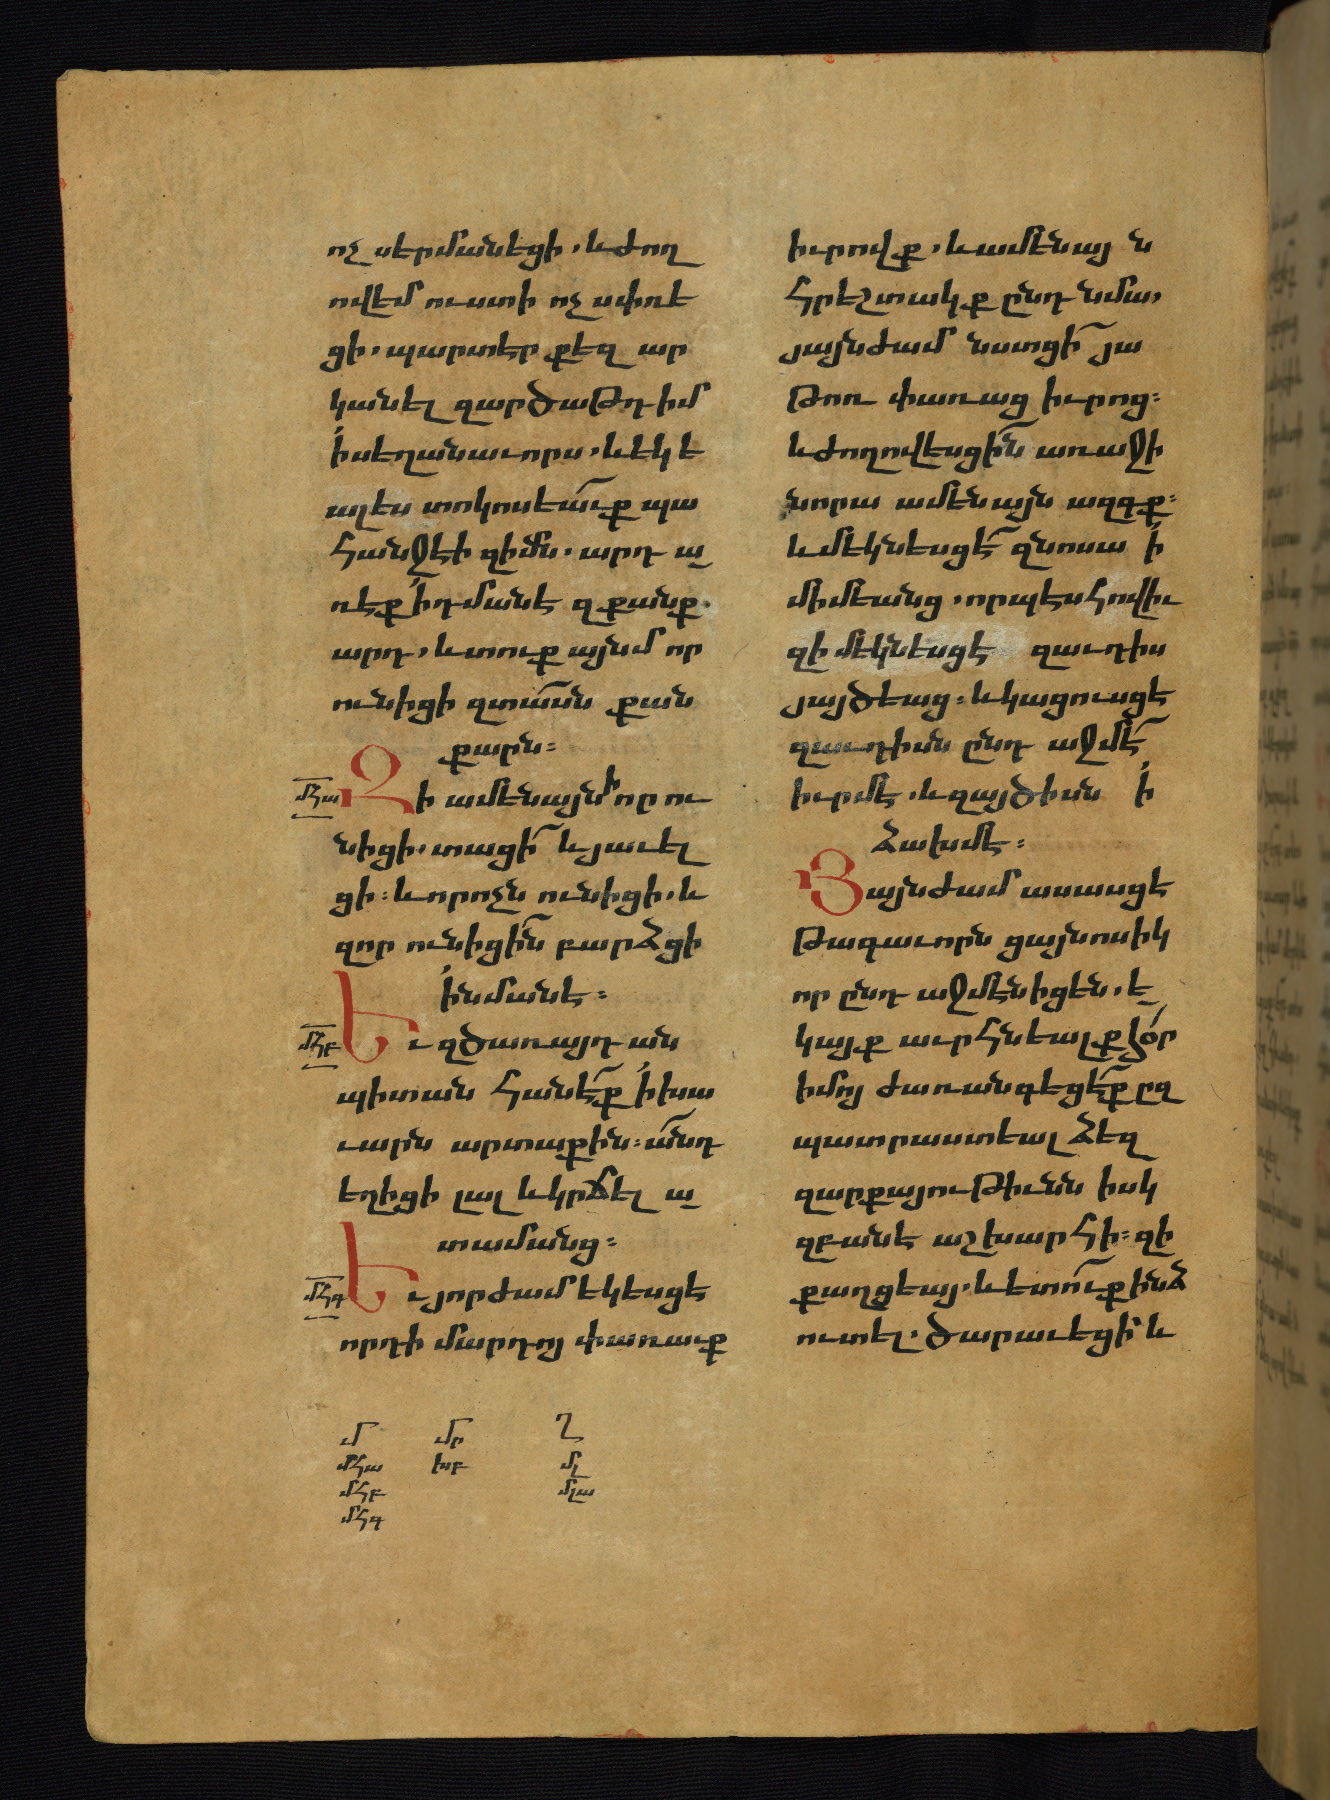 ոչ սերմանեցի, և ժող
ովեմ ուստի ոչ սփռե
ցի, պարտէր քեզ ար
կանել զարծաթդ իմ
ի սեղանաւորս, և եկե
ալ ես տոկոսեաւք պա
հանջէի զիմն. արդ ա
ռէք ի դմանէ զքանքարն.
արդ, և տուք այնմ որ
ունիցի զտասն քան
քարն:
մՀա Զի ամենայնի որ ու
նիցի, տացի և յաւել
ցի: և որ ոչն ունիցի, և
զոր ունիցին բարձցի
ի նմանէ:
մՀբ Եւ զծառայդ ան
պիտան հանէք ի խա
ւարն արտաքին: անդ
եղիցի լալ և կրճել ա
տամանց:
մՀգ Եւ յորժամ եկեսցէ
որդի մարդոյ փառաւք
իւրովք, և ամենայն
հրեշտակք ընդ նմա,
յայնժամ նստցի յա
թոռ փառաց իւրոց:
և ժողովեսցին առաջի
նորա ամենայն ազգք:
և մեկնեսցէ զնոսա ի
միմեանց, որպէս հովիւ
զի մեկնեսցէ զաւդիս
յայծեաց: և կացուսցէ
զաւդիսն ընդ աջմէ
իւրմէ, և զայծիսն ի
ձախմէ:
Յայնժամ ասասցէ
թագաւորն ցայնոսիկ
որ ընդ աջմէն իցեն, ե
կայք աւրհնեալք հօր
իմոյ ժառանգեցէք ըզ
պատրաստեալ ձեզ
զարքայութիւնն իսկ
զբանէ աշխարհի: զի
քաղցեայ, և ետուք ինձ
ուտել. ծարաւեցի և
մ մը Ղ
մՀա խբ մլ
մՀբ մլա
մՀգ